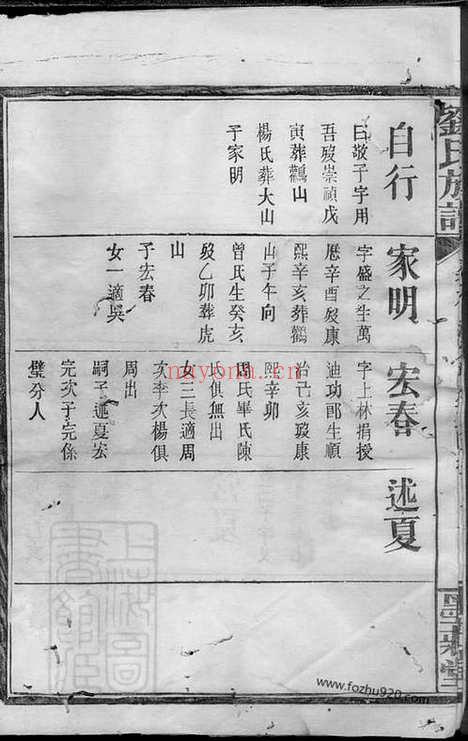 劉氏族譜
自行
曰敬子字用
吾殁崇禎戊
寅葬鸛山
楊氏葬大山
子家明
家明
字盛之生萬
厯辛酉殁康
熙辛亥葬鸛
山子午向
曾氏生癸亥
殁乙卯葬虎
山
子宏春
女一適吳
宏春
字上林捐授
迪功郎生順
治己亥殁康
熙辛卯
周氏畢氏陳
氏俱無出
女三長適周
次李次楊俱
周出
嗣子述夏宏
完次子完係
璧分人
述夏
nuyoma.cn
上海圖書館藏
www.fozhu920.com